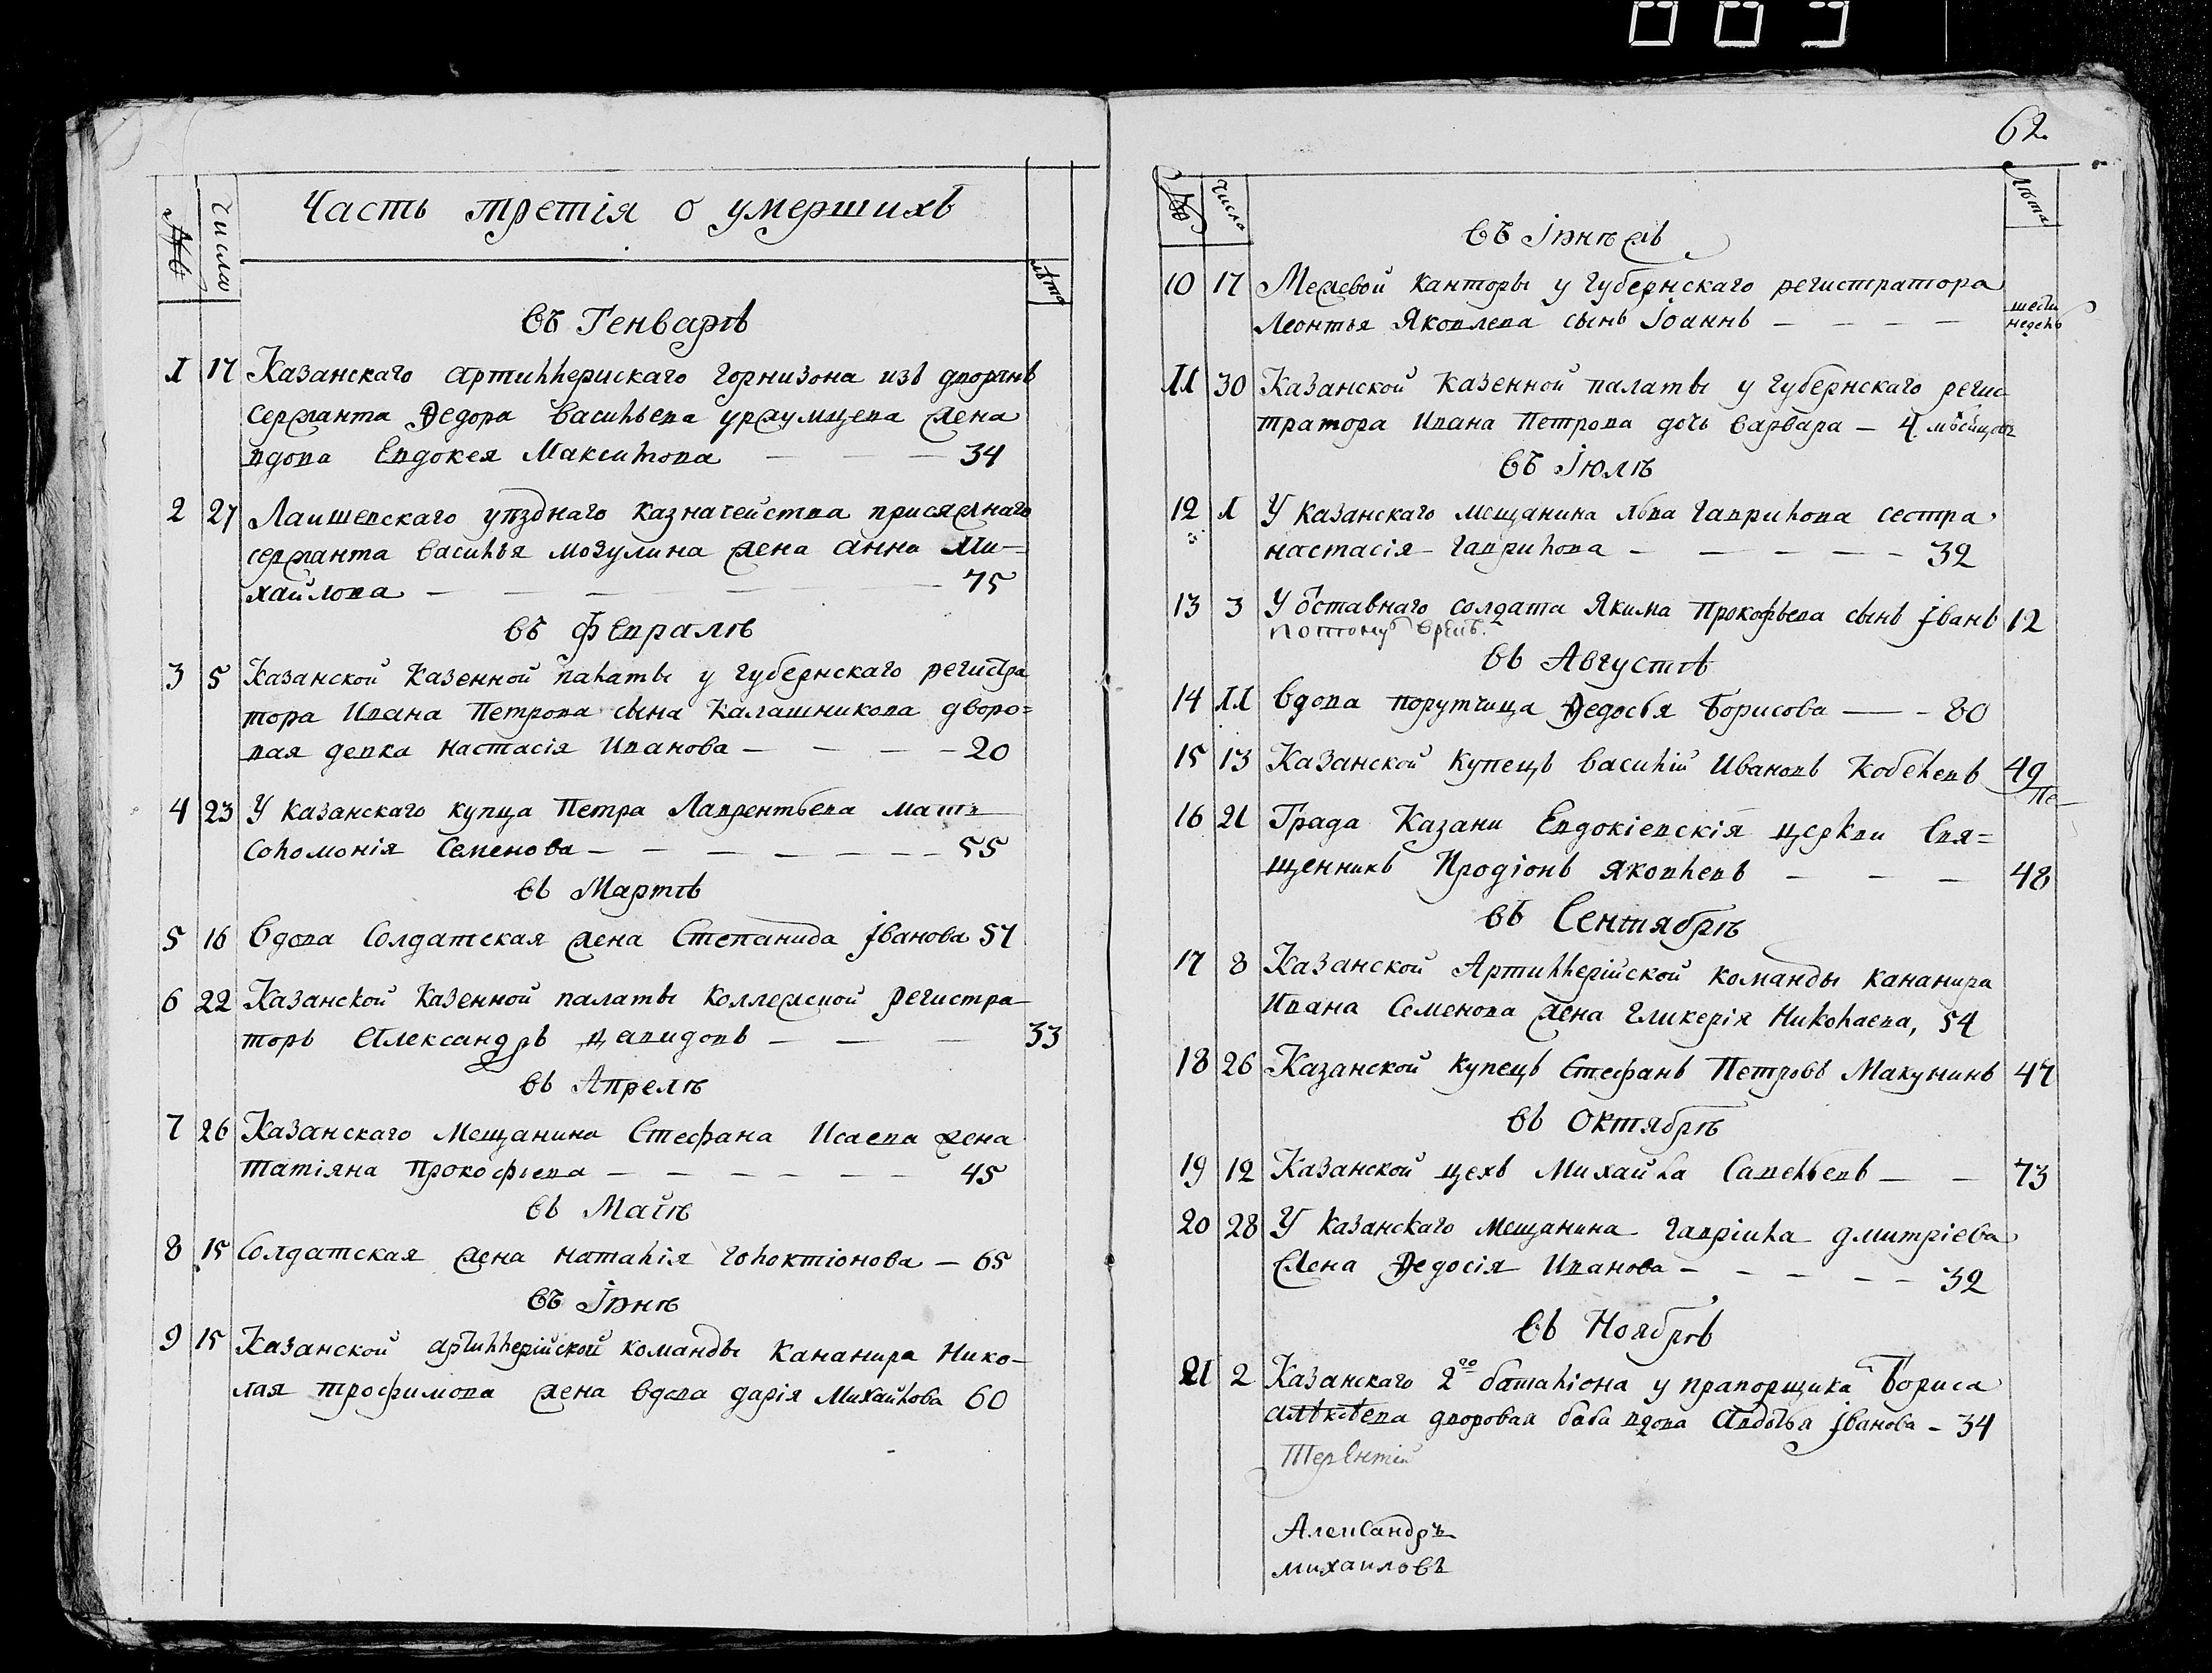 Часть третія о умершихъ
№
Числа
лѣта
въ Генварѣ
1 17 Казанскаго артиллерискаго горнизона изъ дворянъ
сержанта Ѳедора Васильева уржумцева жена
вдова Евдокея Максимова — — — 34
2 27 Лаишевскаго уѣзднаго казначейства присяжнаго
сержанта Василья Мозулина жена Анна Ми-
хайлова — — — — 75
въ Февралѣ
3 5 Казанской казенной палаты у губернскаго регистра
тора Ивана Петрова сына Калашникова дворо=
вая девка Настасія Иванова — — — — 20
4 23 У казанскаго купца Петра Лаврентьева мать
Соломонія Семенова — — — — — — — 55
въ Мартѣ
5 16 Вдова Солдатская жена Степанида Іванова 57
6 22 Казанской Казенной палаты коллежской регистра-
торъ Александръ Давидовъ — — — 33
въ Апрелѣ
7 26 Казанскаго Мещанина Стефана Исаева жена
Татіяна Прокофьева — — — — — — 45
въ Маіѣ
8 15 Солдатская жена Наталія Голоктіонова — 65
въ Іюнѣ
9 15 Казанской артиллерійской команды Кананира Нико-
лая Трофимова жена вдова Дарія Михайлова 60
62.
№
Числа
Лѣта
въ Іюнѣ жъ
10 17 Межевой канторы у губернскаго регистратора
Леонтья Яковлева сынъ Іоаннъ — — — — шести недель
11 30 Казанской казенной палаты у губернскаго регис
тратора Ивана Петрова дочь Варвара — 4 мѣсяцовъ
въ Іюлѣ
12 1 У казанскаго мещанина Льва Гаврилова сестра
Настасія Гаврилова — — — — — 32
13 3 У отставнаго солдата Якима Прокофьева сынъ Іванъ 12
въ Августѣ
14 11 Вдова порутчица Ѳедосья Борисова — — 80
15 13 Казанской Купецъ Василій Ивановъ Кобелевъ 49
16 21 Града Казани Евдокіевскія церкви Свя=
щенникъ Иродіонъ Яковлевъ — — — 48
въ Сентябрѣ
17 8 Казанской Артиллерійской команды кананира
Ивана Семенова жена Гликерія Николаева, 54
18 26 Казанской купецъ Стефанъ Петровъ Макунинъ 47
въ Октябрѣ
19 12 Казанской цехъ Михайла Савельевъ — — 73
20 28 У казанскаго мещанина Гавріила Дмитріева
жена Ѳедосія Иванова — — — — — 32
въ Ноябрѣ
21 2 Казанскаго 2го баталіона у прапорщика Бориса
дворовая баба вдова Авдотья Іванова — 34
Терентій
Александръ
михаиловъ